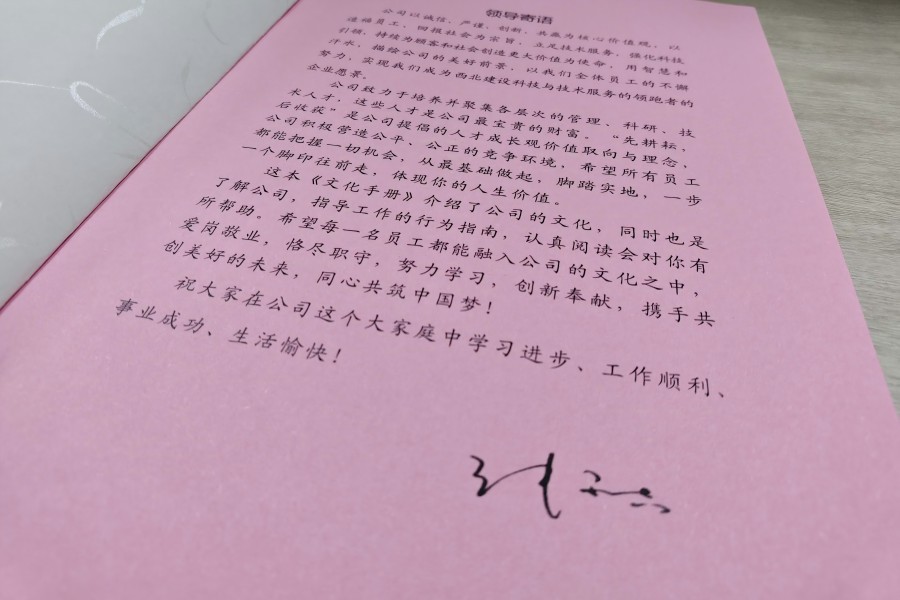 领导寄语
公司以诚信、严谨、创新、共赢为核心价值观，以
造福员工、回报社会为宗旨，立足技术服务，强化科技
引领，持续为顾客和社会创造更大价值为使命，用智慧和
汗水，描绘公司的美好前景，以我们全体员工的不懈
努力，实现我们成为西北建设科技与技术服务的领跑者的
企业愿景。
公司致力于培养并聚集各层次的管理、科研、技
术人才，这些人才是公司最宝贵的财富。“先耕耘，
后收获”是公司提倡的人才成长观价值取向与理念，
公司积极营造公平、公正的竞争环境，希望所有员工
都能把握一切机会，从最基础做起，脚踏实地，一步
一个脚印往前走，体现你的人生价值。
这本《文化手册》介绍了公司的文化，同时也是
了解公司，指导工作的行为指南，认真阅读会对你有
所帮助。希望每一名员工都能融入公司的文化之中，
爱岗敬业，恪尽职守，努力学习，创新奉献，携手共
创美好的未来，同心共筑中国梦！
祝大家在公司这个大家庭中学习进步、工作顺利、
事业成功、生活愉快！